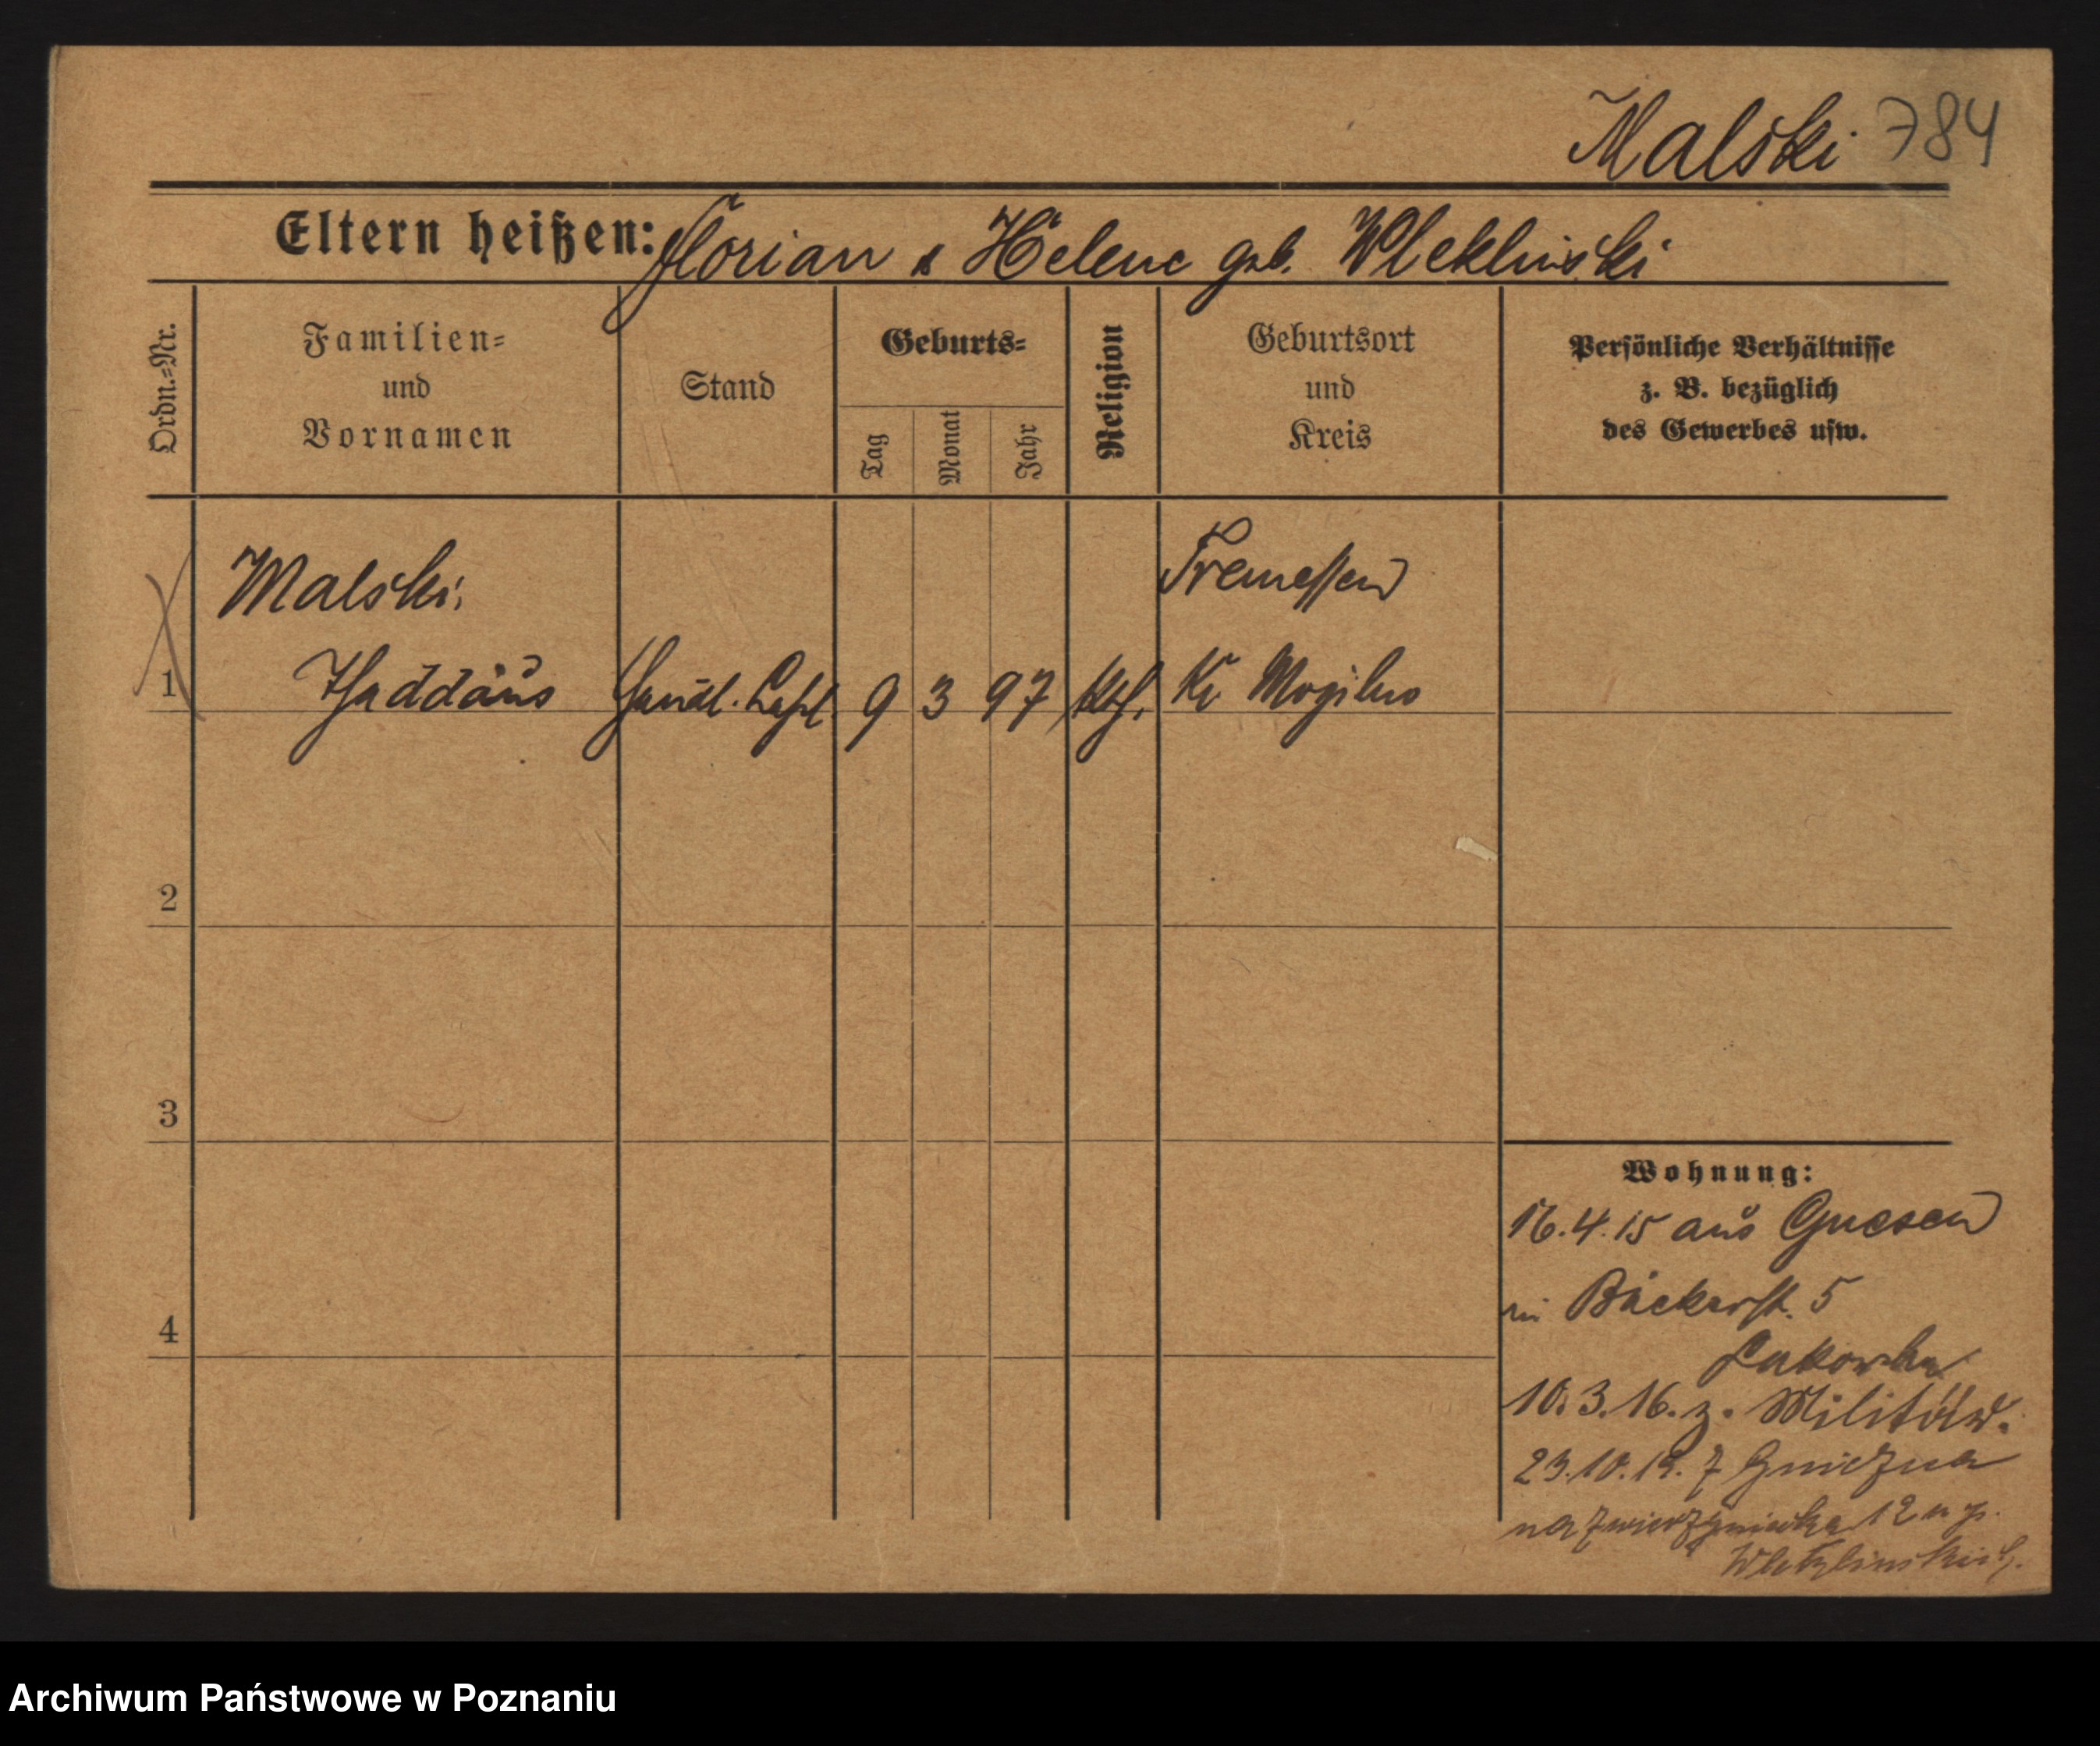 Malski 784
Eltern heißen: Florian u Helene geb. Wleklinski
Ordn.-Nr.
Familien-
und
Vornamen
Stand
Geburts-
Tag
Monat
Jahr
Religion
Geburtsort
und
Kreis
Persönliche Verhältnisse
z. B. bezüglich
des Gewerbes usw.
Malski
Tremessen
1 Thaddäus Handl. Lehrl. 9 3 97 kth. Kr Mogilno
2
3
4
Wohnung:
16.4.15 aus Gnesen
in Bäckerst. 5
10.3.16. z. Militär.
23.10.19. z Gniezna
na Zwierzyniecka 12 u p.
Archiwum Państwowe w Poznaniu